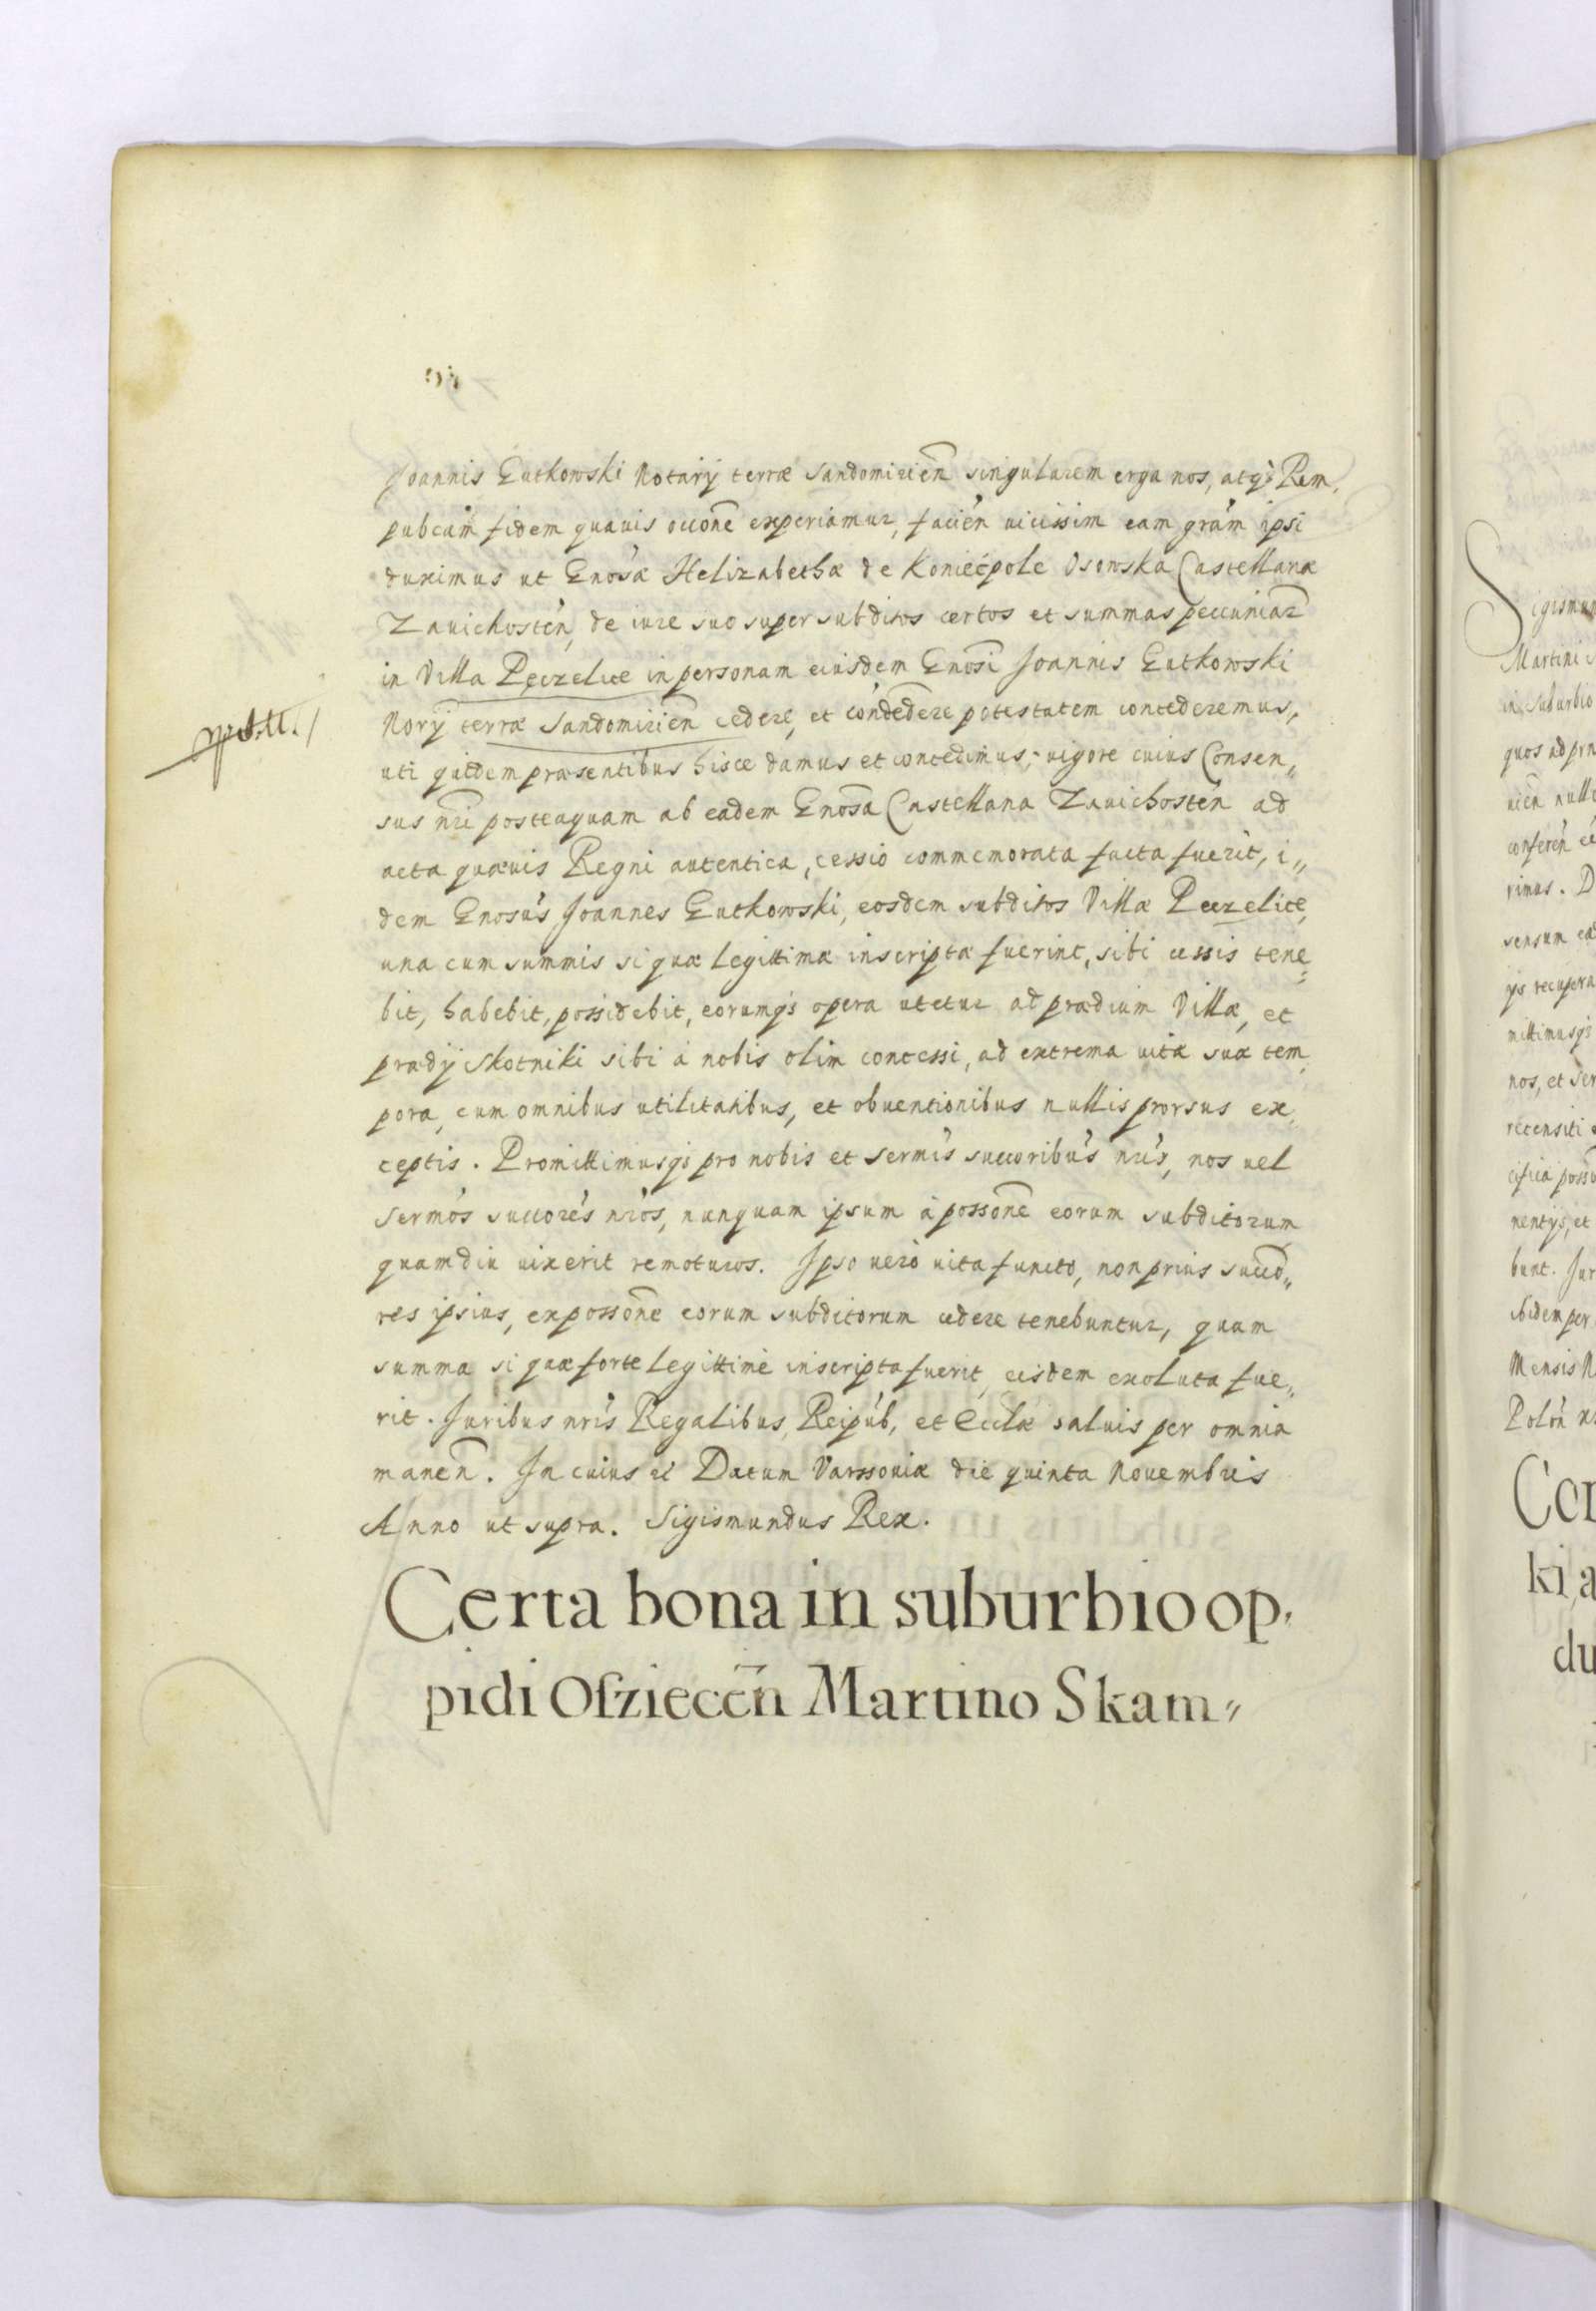 Joannis Gutkowski Notarÿ terræ Sandomirien̄ singularem erga nos, atqꝫ Rem,
pubcam̄ fidem quauis occon̄e experiamur, facien̄ uicissim eam grām ipsi
duximus ut Gnosæ Helizabethæ de Koniecpole Osowska Castellanæ
Zauichosten̄, de iure suo super subditos certos et summas pecuniar̄
in Villa Peczelice in personam eiusdem Gnosi Joannis Gutkowski
Norÿ terræ Sandomirien̄ cedere, et condedere potestatem concederemus,
uti quidem præsentibus hisce damus et concedimus, uigore cuius Consen„
sus nr̄i posteaquam ab eadem Gnosa Castellana Zauichosten̄ ad
acta quæuis Regni autentica, cessio commemorata facta fuerit, i„
dem Gnosus Joannes Gutkowski, eosdem subditos Villæ Peczelice,
una cum summis si quæ legittimæ inscriptæ fuerint, sibi cessis tene„
bit, habebit, possidebit, eorumqꝫ opera utetur ad prædium Villæ, et
prædÿ Skotniki sibi à nobis olim concessi, ad extrema uitæ suæ tem„
pora, cum omnibus utilitatibus, et obuentionibus nullis prorsus ex„
ceptis. Promittimusqꝫ pro nobis et Sermis succoribus nr̄is, nos uel
Sermos succores nr̄os, nunquam ipsum à posson̄e eorum subditorum
quamdiu uixerit remoturos. Ipso uerò uita functo, non prius succo„
res ipsius, ex posson̄e eorum subditorum cedere tenebuntur, quam
summa si quæ forte legittimè inscripta fuerit, eisdem exoluta fue„
rit. Juribus nr̄is Regalibus, Reipub, et Ecclæ saluis per omnia
manen̄. In cuius ei Datum Varssouiæ die quinta Nouembris
Anno ut supra. Sigismundus Rex.
Certa bona in suburbio op„
pidi Osziecen̄ Martino Skam„